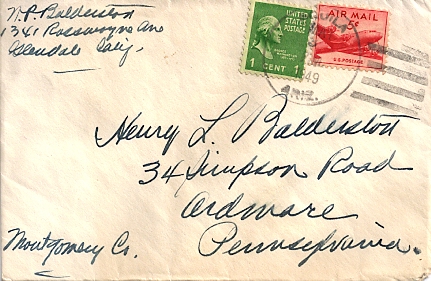 N.P. Balderston
1341 Rossmoyne Ave
Glendale Calif.
UNITED STATES POSTAGE
1 CENT 1
AIR MAIL
5¢
U.S. POSTAGE
1949
ARIZ.
Henry L. Balderston
34 Simpson Road
Ardmore
Pennsylvania.
Montgomery Co.